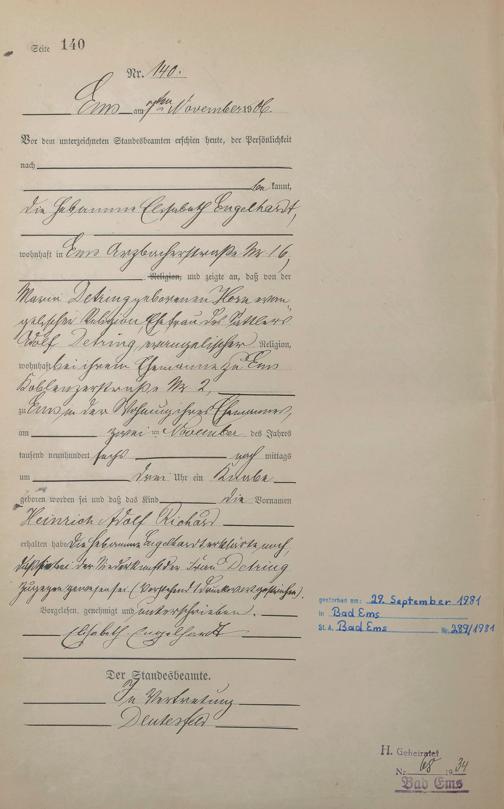 Seite 140
Nr. 140.
Ems am ten November 1906.
Vor dem unterzeichneten Standesbeamten erschien heute, der Persönlichkeit
nach
be kannt,
die Hebamme Elisabeth Engelhardt,
wohnhaft in Ems Arzbacherstraße Nr 16,
Religion, und zeigte an, daß von der
Maria Detring geborenen Horn evan-
gelischer Religion, Ehefrau des Sattlers
Adolf Detring, evangelischer Religion,
wohnhaft bei ihrem Ehemanne zu Ems
Koblenzerstraße Nr 2,
zu Ems, in der Wohnung ihres Ehemannes,
am zwei ten November des Jahres
tausend neunhundert sechs nach mittags
um drei Uhr ein Knabe
geboren worden sei und daß das Kind die Vornamen
Heinrich Adolf Richard
erhalten habe. Die Hebamme Engelhardt erklärte noch,
daß sie bei der Niederkunft der Frau Detring
zugegen gewesen sei. (Vorstehend 1 Druckwort gestrichen).
Vorgelesen, genehmigt und unterschrieben.
Elisabeth Engelhardt
Der Standesbeamte.
In Vertretung
gestorben am: 29. September 1981
in Bad Ems
St. A. Bad Ems Nr. 289/1981
H. Geheiratet
Nr. 68 1934
Bad Ems